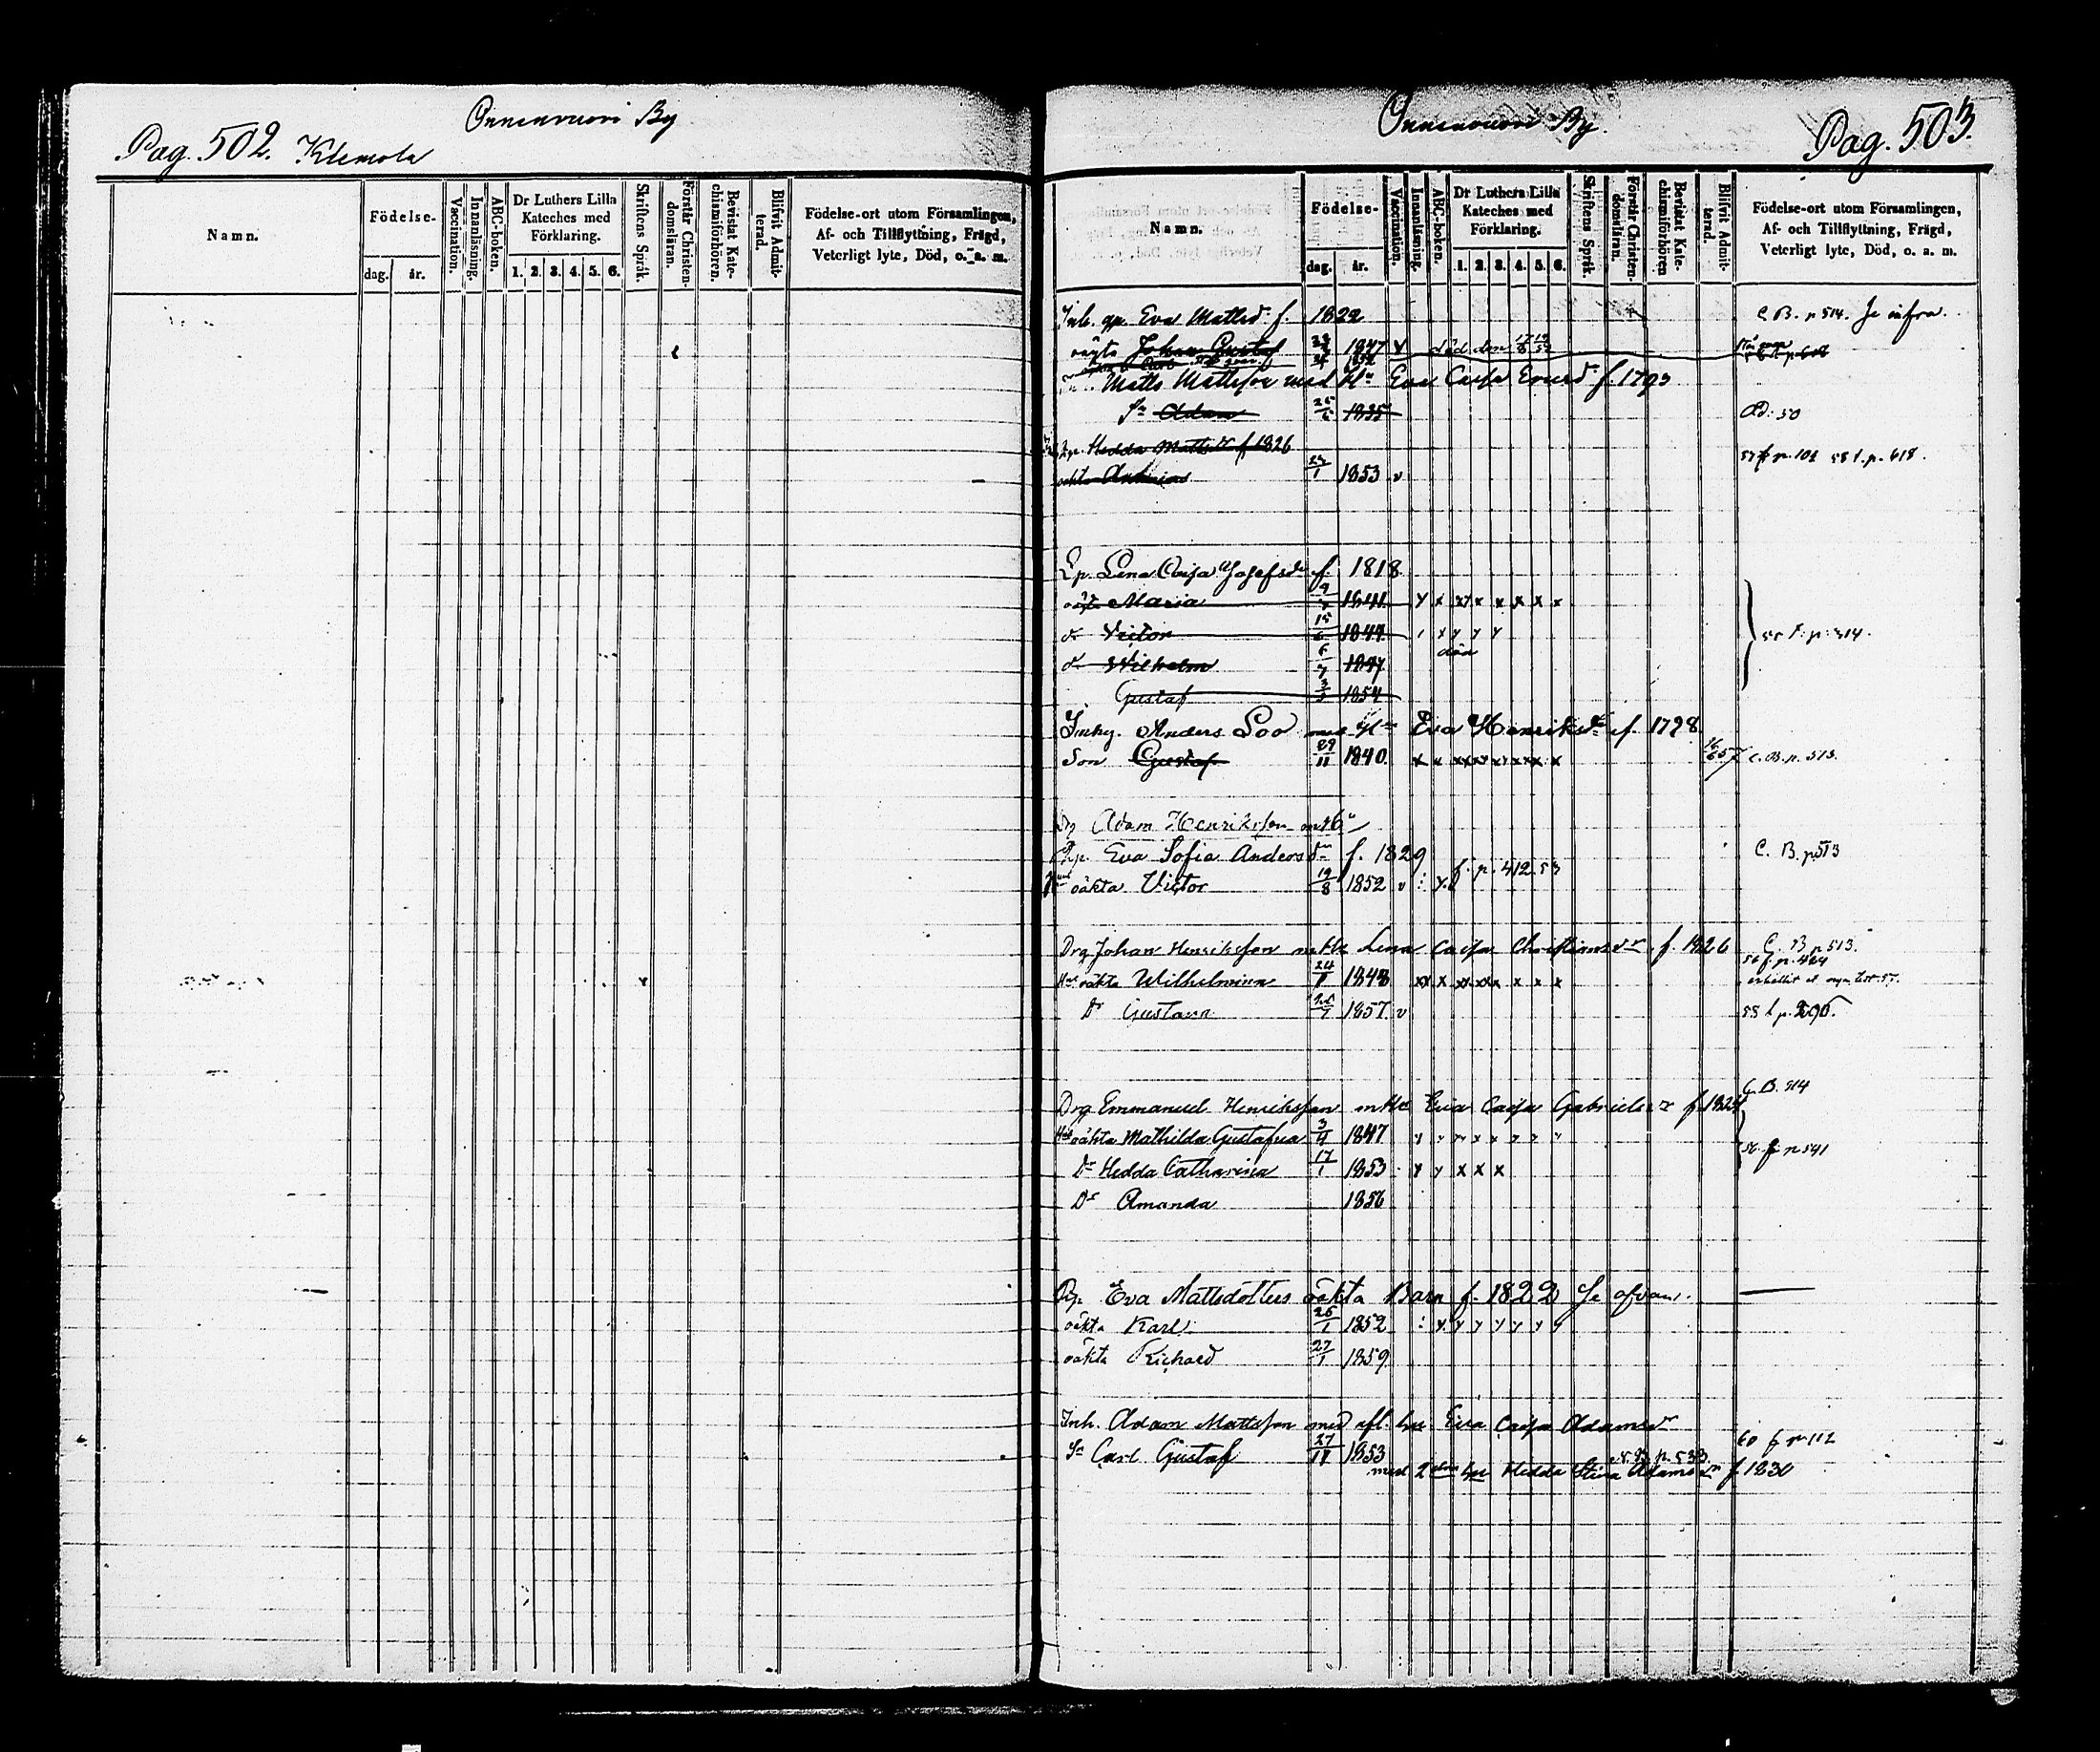 Onnenvuori By
Pag. 502. Klemola
Namn.
Födelse-
dag.
år.
Vaccination.
Innanläsning.
ABC-boken.
Dr Luthers Lilla Kateches med Förklaring.
1. 2. 3. 4. 5. 6.
Skriftens Språk.
Förstår Christen-domsläran.
Bevistat Kate-chismiförhören.
Blifvit Admit-terad.
Födelse-ort utom Församlingen, Af- och Tillflyttning, Frägd, Veterligt lyte, Död, o. a. m.
Onnenvuori By.
Pag. 503.
Namn.
Födelse-
dag.
år.
Vaccination.
Innanläsning.
ABC-boken.
Dr Luthers Lilla Kateches med Förklaring.
1. 2. 3. 4. 5. 6.
Skriftens Språk.
Förstår Christen-domsläran.
Bevistat Kate-chismiförhören
Blifvit Admit-terad.
Födelse-ort utom Församlingen, Af- och Tillflyttning, Frägd, Veterligt lyte, Död, o. a. m.
Inh. qp. Eva Mattsd. f. 1822 C. B. p 514. Se infra.
oäkta Johan Gustaf 1847 v död den
Matts Mattsson med Hu Eva Cajsa Ersd. f. 1793
Sn Adam 1835 Ad: 50
Qp. Hedda Mattsdr f 1826 57 f p. 102 58 f. p. 618.
oäkta Antonia 23/1 1853 v
Qp. Lena Cajsa Josefsdr f. 1818
oäkta Maria 1841 v x xx x x x x x
dn Victor 15/6 1844 x y y y
dn Wilhelm 6/7 1847 död
Gustaf 3/3 1854
55 f. p. 314.
Inhy. Anders Loo med Hu Eva Henriksdr f. 1798
Son Gustaf 29/11 1840. C. B. p. 513.
Dg Adam Henriksson m H
Qp. Eva Sofia Andersdr f. 1829 C. B. p 513
oäkta Victor 19/8 1852 v f. p. 412. 53
Drg Johan Henriksson m Hu Lena Cajsa Christiansdr f. 1826 C. B p 513.
Hs oäkta Wilhelmina 24/8 1848 xx x xx xx x x x 56 f. p. 424
Dr Gustava 1857 v 58 f p. 290.
Drg Emmanuel Henriksson m Hu Eva Cajsa Gabrielsdr f. 1824 C. B. 514
Hs oäkta Mathilda Gustafva 3/4 1847
Dr Hedda Catharina 17/1 1853 y y x x x 56 f p 541
Dr Amanda 1856
Qp. Eva Mattsdotters oäkta Barn f. 1822 Se ofvan.
oäkta Karl 26/1 1852
oäkta Richard 27/1 1859
Inh. Adam Mattsson med afl. hu Eva Cajsa Adamsdr
Sn Carl Gustaf 1853 60 f p 112
C. B. p. 533
med 2dra hu Hedda Stina Adamsdr f. 1830